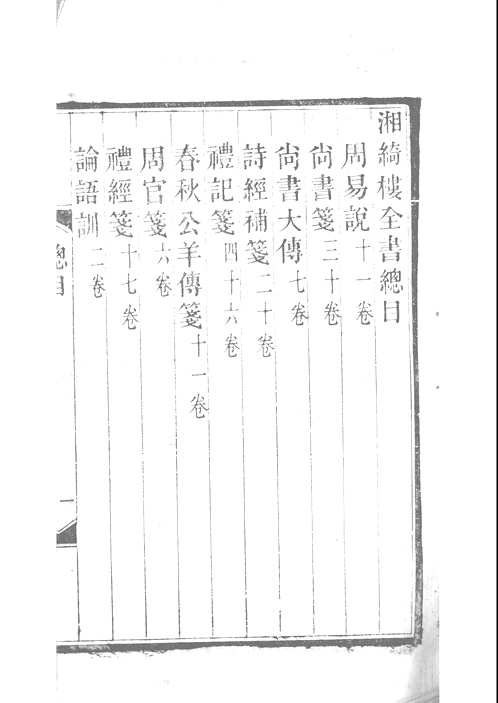 湘綺樓全書總目
周易說十一卷
尙書箋三十卷
尙書大傳七卷
詩經補箋二十卷
禮記箋四十六卷
春秋公羊傳箋十一卷
周官箋六卷
禮經箋十七卷
論語訓二卷
總目
一